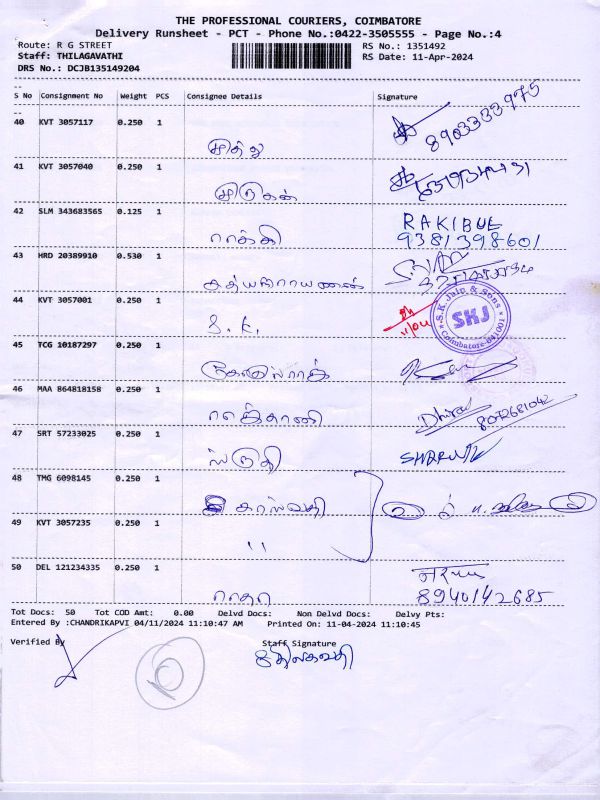 THE PROFESSIONAL COURIERS, COIMBATORE
Delivery Runsheet - PCT - Phone No.:0422-3505555 - Page No.:4
Route: R G STREET
RS No.: 1351492
Staff: THILAGAVATHI
RS Date: 11-Apr-2024
DRS No.: DCJB135149204
S No Consignment No Weight PCS Consignee Details Signature
40 KVT 3057117 0.250 1
முத்து
41 KVT 3057040 0.250 1
முருகன்
42 SLM 343683565 0.125 1 RAKIBUL
ராக்கி 9381398601
43 HRD 20389910 0.530 1
சத்யநாராயணன்
44 KVT 3057001 0.250 1
S. K. 11/04 S.K. Jain & Sons SKJ Coimbatore-641001
45 TCG 10187297 0.250 1
46 MAA 864818158 0.250 1
Dhiraj 8072681042
47 SRT 57233025 0.250 1
ஸ்ருதி
48 TMG 6098145 0.250 1
சரஸ்வதி
49 KVT 3057235 0.250 1
"
50 DEL 121234335 0.250 1
ராதா 8940142685
Tot Docs: 50 Tot COD Amt: 0.00 Delvd Docs: Non Delvd Docs: Delvy Pts:
Entered By :CHANDRIKAPVI 04/11/2024 11:10:47 AM Printed On: 11-04-2024 11:10:45
Verified By Staff Signature
திலகவதி
10